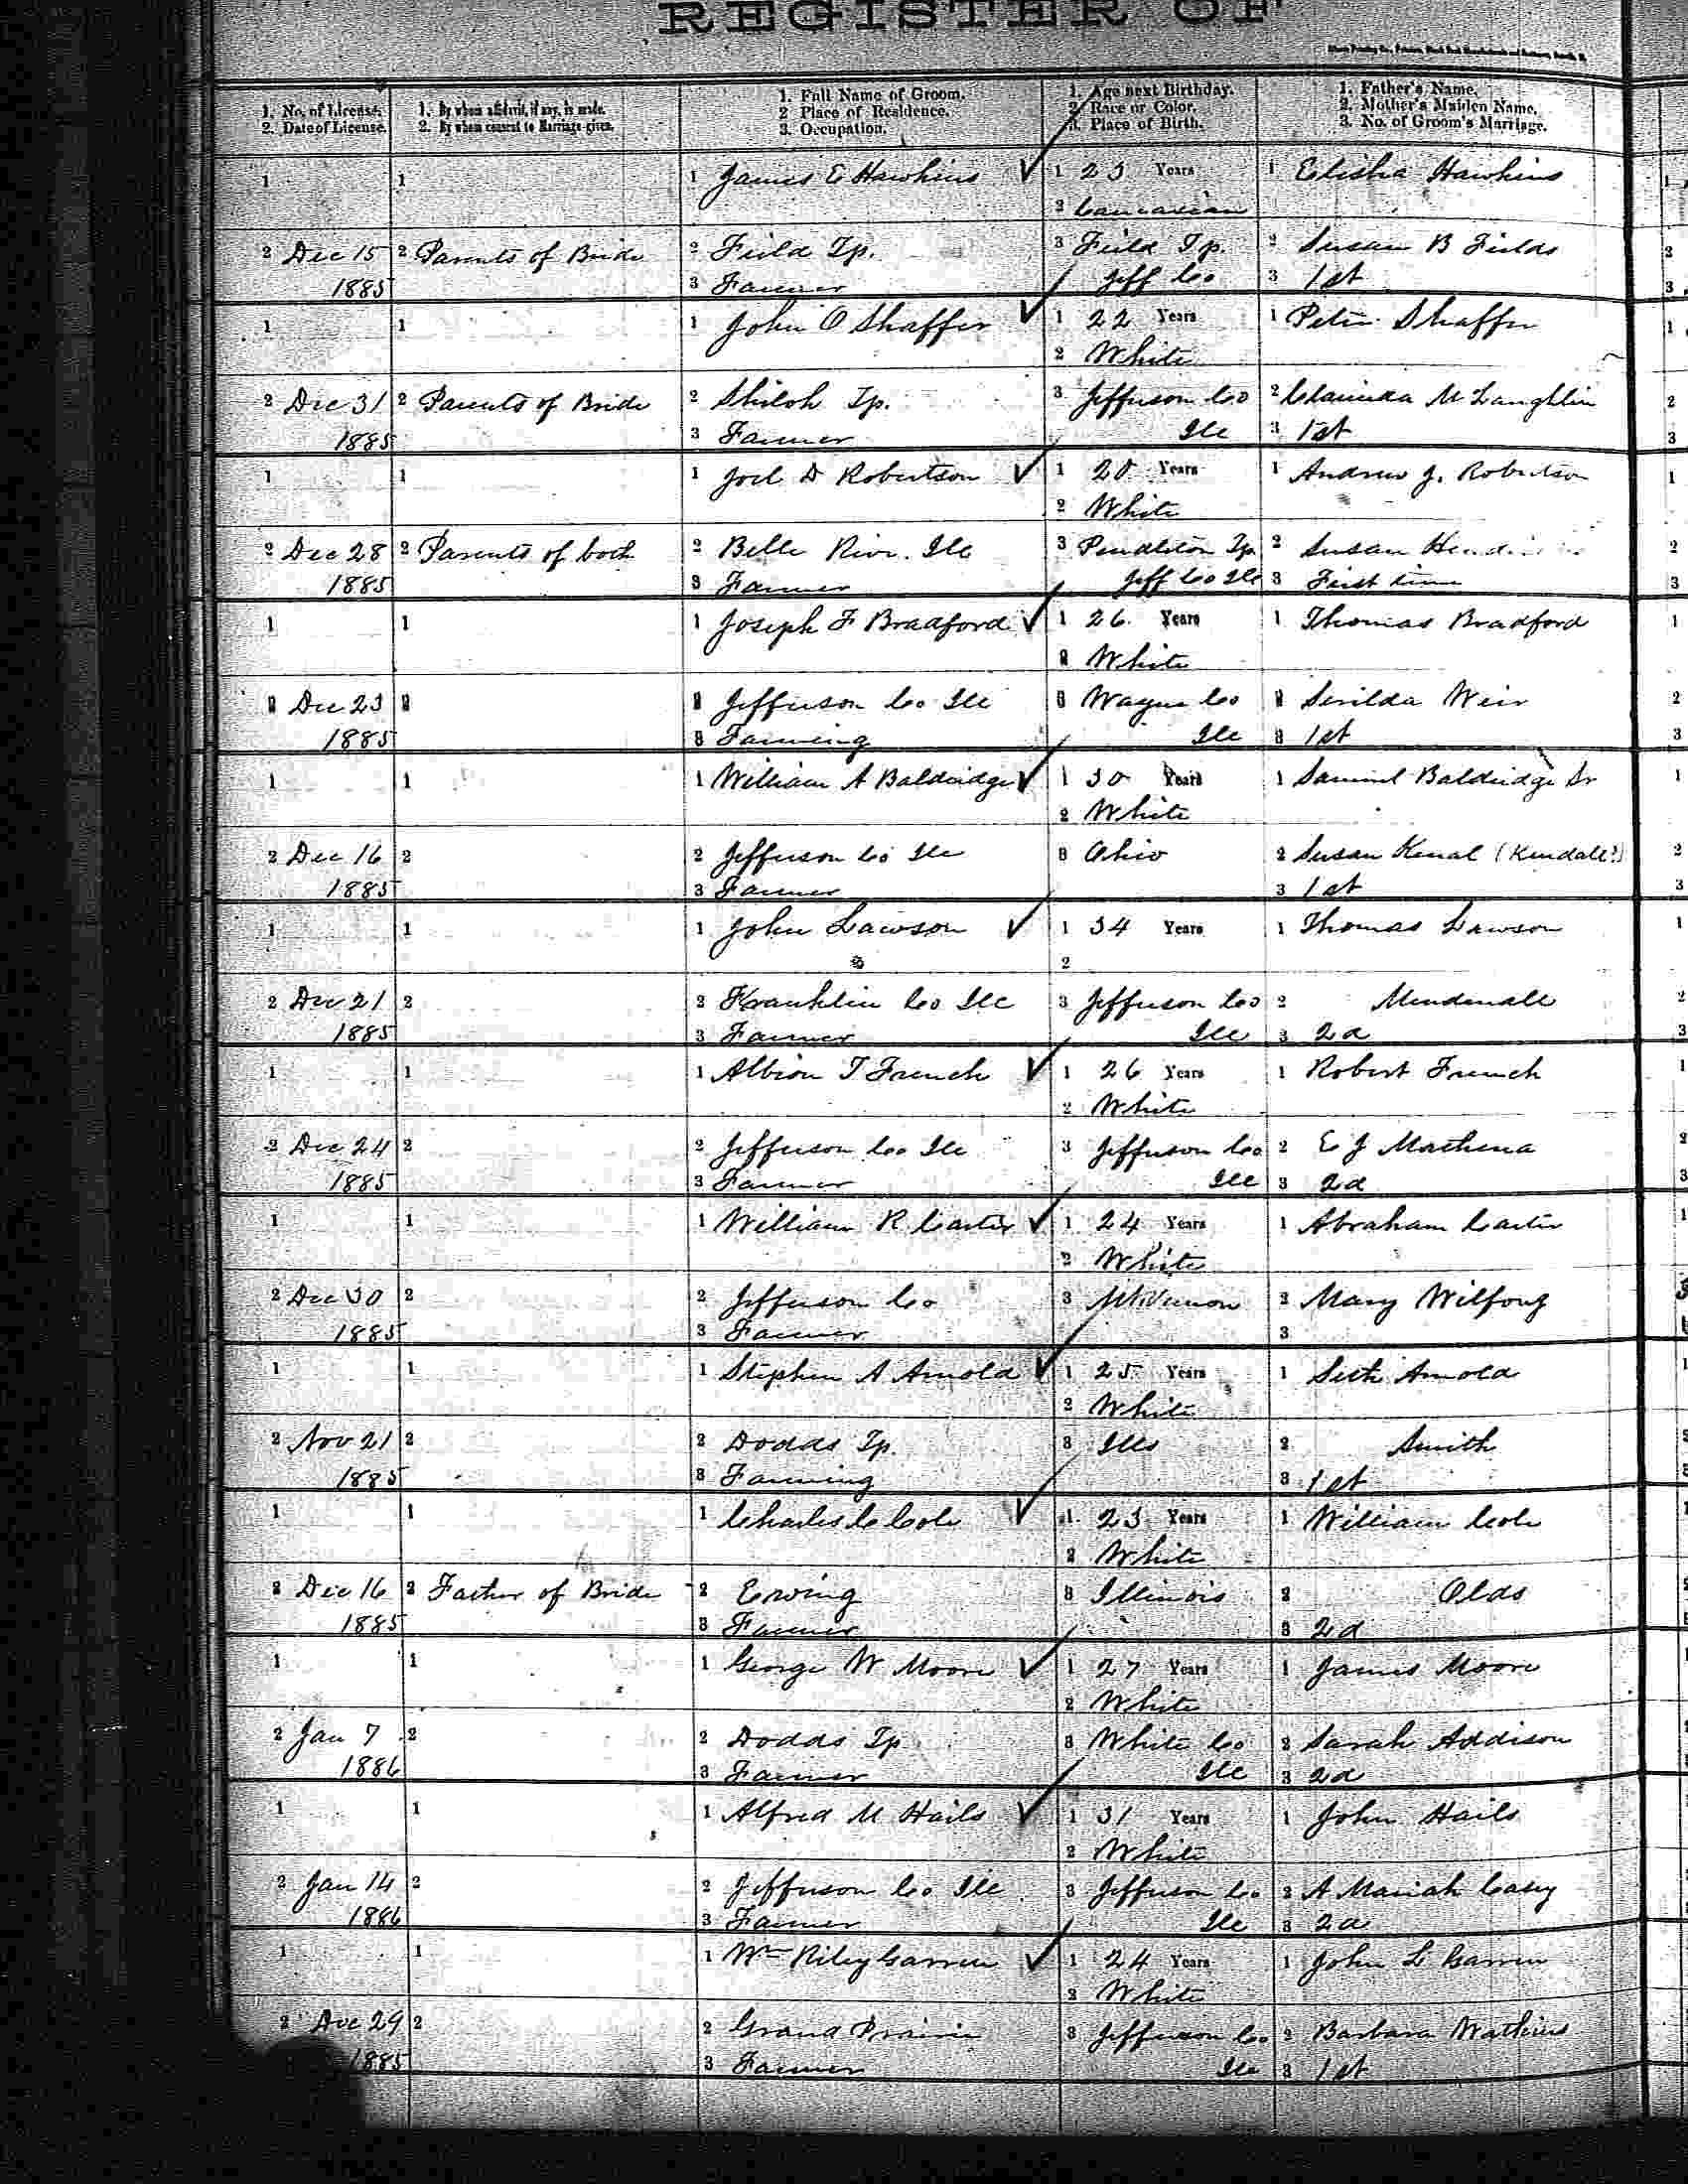 REGISTER OF
1. No. of License.
2. Date of License.
1. By whom affidavit, if any, is made.
2. By whom consent to Marriage given.
1. Full Name of Groom.
2 Place of Residence.
3. Occupation.
1. Age next Birthday.
2. Race or Color.
3. Place of Birth.
1. Father's Name.
2. Mother's Maiden Name.
3. No. of Groom's Marriage.
1 1 1 James E Hawkins ✓ 1 23 Years 1 Elisha Hawkins
2 Caucasian
2 Dec 15 2 Parents of Bride 2 Field Tp. 3 Feild Tp. 2 Susan B Fields
1885 3 Farmer Jeff Co 3 1st
1 1 1 John O Shaffer ✓ 1 22 Years 1 Peter Shaffer
2 White
2 Dec 31 2 Parents of Bride 2 Shiloh Tp. 3 Jefferson Co 2 Clarinda McLaughlin
1885 3 Farmer Ill 3 1st
1 1 1 Joel D Robertson ✓ 1 20 Years 1 Andrew J. Robertson
2 White
2 Dec 28 2 Parents of both 2 Belle River. Ill 3 Pendleton Tp. 2 Susan
1885 3 Farmer Jeff Co Ill 3 First time
1 1 1 Joseph F Bradford ✓ 1 26 Years 1 Thomas Bradford
2 White
2 Dec 23 2 2 Jefferson Co Ill 3 Wayne Co 2 Serilda Weir
1885 3 Farming Ill 3 1st
1 1 1 William A Baldridge ✓ 1 30 Years 1 Samuel Baldridge Sr
2 White
2 Dec 16 2 2 Jefferson Co Ill 3 Ohio 2 Susan Kenal (Kendall?)
1885 3 Farmer 3 1st
1 1 1 John Lawson ✓ 1 34 Years 1 Thomas Lawson
2
2 Dec 21 2 2 Franklin Co Ill 3 Jefferson Co 2 Mendenall
1885 3 Farmer Ill 3 2d
1 1 1 Albion T French ✓ 1 26 Years 1 Robert French
2 White
2 Dec 24 2 2 Jefferson Co Ill 3 Jefferson Co 2 E J Mathena
1885 3 Farmer Ill 3 2d
1 1 1 William R Carter ✓ 1 24 Years 1 Abraham Carter
2 White
2 Dec 30 2 2 Jefferson Co 3 Mt. Vernon 2 Mary Wilfong
1885 3 Farmer 3
1 1 1 Stephen A Arnold ✓ 1 25 Years 1 Seth Arnold
2 White
2 Nov 21 2 2 Dodds Tp. 3 Ills 2 Smith
1885 3 Farming 3 1st
1 1 1 Charles C Cole ✓ 1. 23 Years 1 William Cole
2 White
2 Dec 16 2 Father of Bride 2 Ewing 3 Illinois 2 Olds
1885 3 Farmer 3 2d
1 1 1 George W Moore ✓ 1 27 Years 1 James Moore
2 White
2 Jan 7 2 2 Dodds Tp 3 White Co 2 Sarah Addison
1886 3 Farmer Ill 3 2d
1 1 1 Alfred M Hails ✓ 1 31 Years 1 John Hails
2 White
2 Jan 14 2 2 Jefferson Co Ill 3 Jefferson Co 2 A Mariah Casey
1886 3 Farmer Ill 3 2d
1 1 1 Wm Riley Garren ✓ 1 24 Years 1 John L Garren
2 White
2 Dec 29 2 2 Grand Prairie 3 Jefferson Co 2 Barbara Watkins
1885 3 Farmer Ill 3 1st